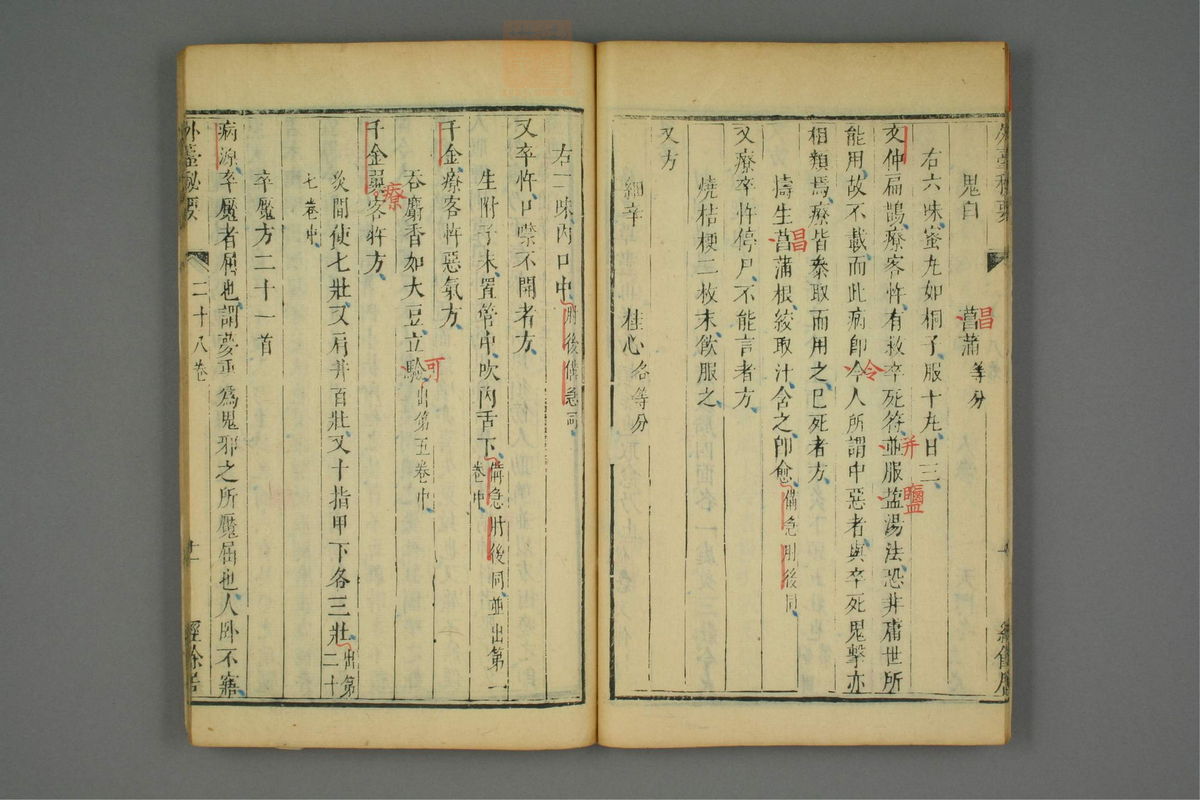 外臺秘要
鬼臼 菖蒲等分
昌
右六味蜜丸如桐子服十丸日三
文仲扁鵲療客忤有救卒死符並服盐湯法恐非庸世所
并 鹽
能用故不載而此病即今人所謂中惡者與卒死鬼擊亦
令
相類焉療皆參取而用之巳死者方
擣生菖蒲根絞取汁含之即愈備急肘後同
昌
又療卒忤停尸不能言者方
燒桔梗二枚末飲服之
又方
細辛 桂心各等分
右二味内口中肘後備急同
又卒忤口噤不開者方
生附子末置管中吹内舌下備急肘後同並出第一
卷中
千金療客忤惡氣方
吞麝香如大豆立驗出第五卷中
可
千金翼客忤方
療
灸間使七壯又肩井百壯又十指甲下各三壯出第二十
七卷中
卒魘方二十一首
病源卒魘者屈也謂夢裏為鬼邪之所魘屈也人卧不寤
外臺秘要 二十八卷 十一 經餘居